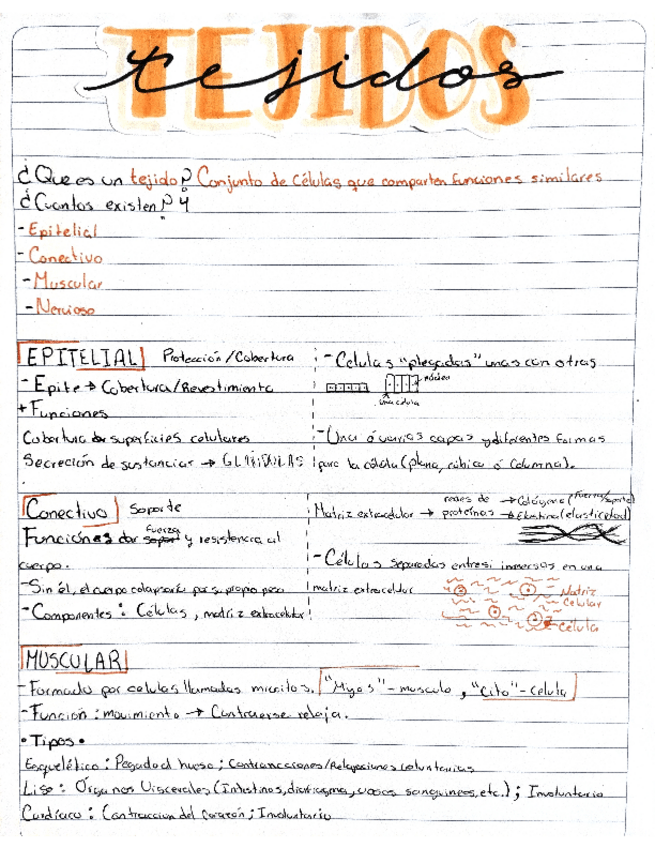 TEJIDOS
tejidos
¿Que es un tejido? Conjunto de Células que comparten funciones similares
¿Cuantos existen? 4
- Epitelial
- Conectivo
- Muscular
- Nervioso
EPITELIAL Protección/Cobertura
- Epite → Cobertura/Revestimiento
+ Funciones
Cobertura de superficies celulares
Secreción de sustancias → GLÁNDULAS
- Celulas "plegadas" unas con otras
núcleo
una célula
- Una ó varias capas y diferentes formas
para la célula (plana, cúbica ó Columna).
Conectivo Soporte
Funciones dar fuerza y resistencia al
cuerpo.
- Sin él, el cuerpo colapsaría por su propio peso
- Componentes: Células, matriz extracelular
Matriz extracelular → redes de proteínas → Colágeno (fuerza/soporte)
→ Elastina (elasticidad)
- Células separadas entre si inmersas en una
matriz extracelular
Matriz
Celular
Célula
MUSCULAR
- Formado por celulas llamadas miocitos. "Myos" - musculo, "Cito" - célula
- Función: movimiento → Contraerse relaja.
• Tipos •
Esquelético: Pegado al hueso; Contracciones/Relajaciones voluntarias
Liso: Órganos Viscerales (Intestinos, diafragma, vasos sanguineos, etc.); Involuntario
Cardíaco: Contraccion del corazón; Involuntario